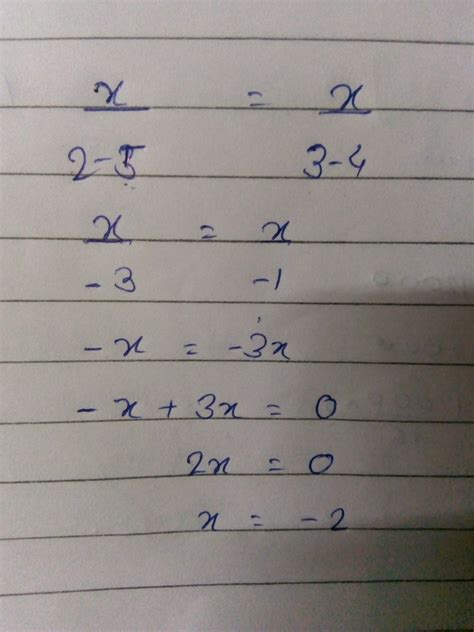 x = x
2-5 3-4
x = x
-3 -1
-x = -3x
-x + 3x = 0
2x = 0
x = -2